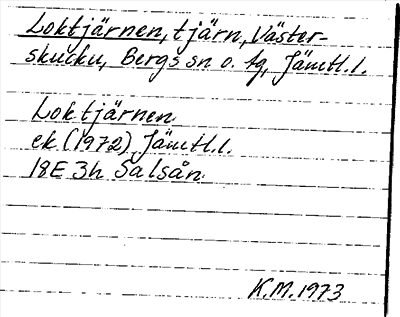 Loktjärnen, tjärn, Väster-
skucku, Bergs sn o. tg, Jämtl.l.
Loktjärnen.
ek (1972) Jämtl.l.
18E 3h Salsån.
K.M. 1973